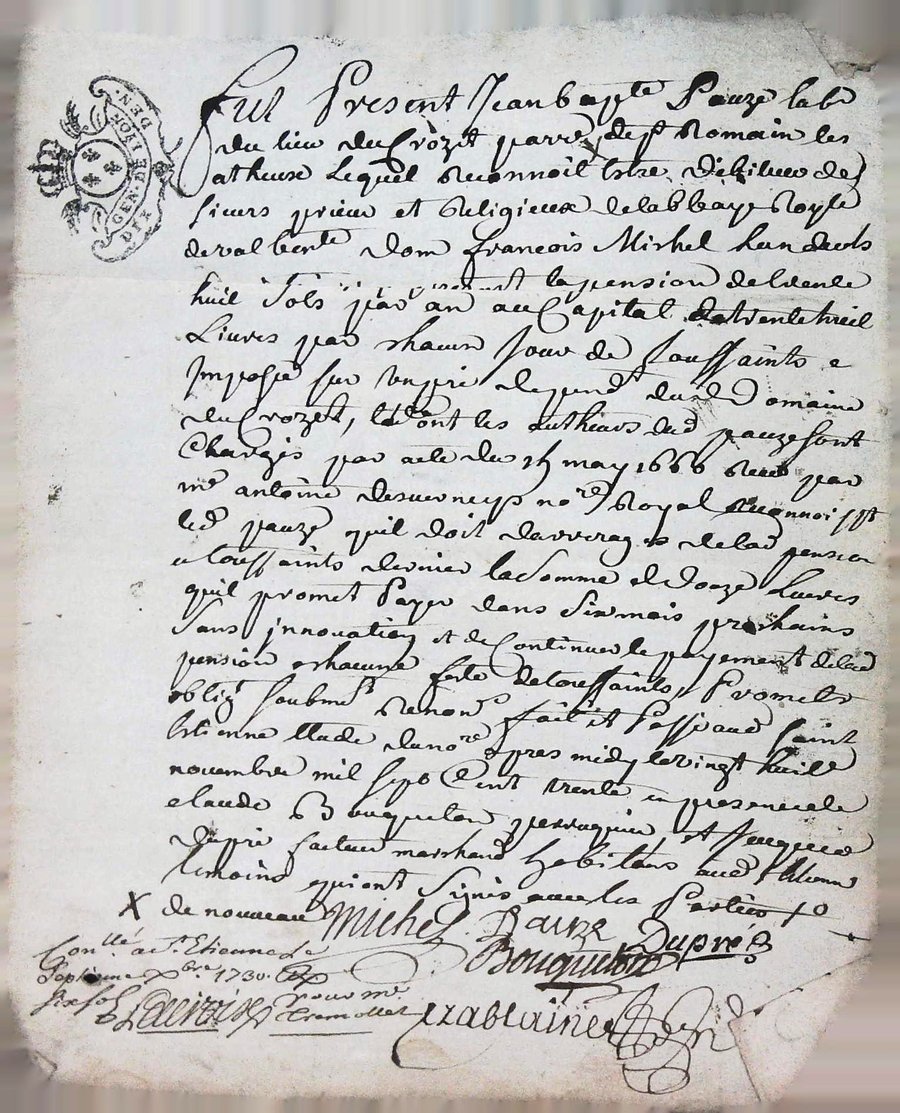 GEN. DE LION
DEN.
DIX
Fut Present Jean bapte Pauze labr
du lieu du Crozet parre de st Romain les
atheux Lequel Reconnoit Estre Debiteur des
sieurs prieur et Religieux de labbaye Royle
de valbente dom francois Michel
huit sols par an la pension de trente
au Capital de trente huit
Livres par chacun Jour de Toussaints e
Imposée sur un pré depend dud Domaine
du Crozet, dont les autheurs dud pauze sont
Chargés par acte du may 1666 Receu par
me antoine desverneys nore Royal Reconnoisst
led pauze quil doit darrerages de lad pension
a toussaints dernier la Somme de douze Livres
quil promet Payer dans Six mois prochains
Sans Innovation et de Continuer le payement de lad
pension chacune feste de toussaints, Promett
oblig soubmt Renonc fait et Passé aud Saint
Etienne Etude dunore apres midy le vingt huit
novembre mil sept Cent trente en presence de
claude Bouqueton perruquier, et Jacques
dupré facteur marchand habitans aud st Etienne
temoins qui ont Signés avec les Parties
X de nouveau Michel Pauze Dupré
Bouqueton
Conllé a st Etienne le
septieme xbre 1730
six sols pour mr
Tremollet